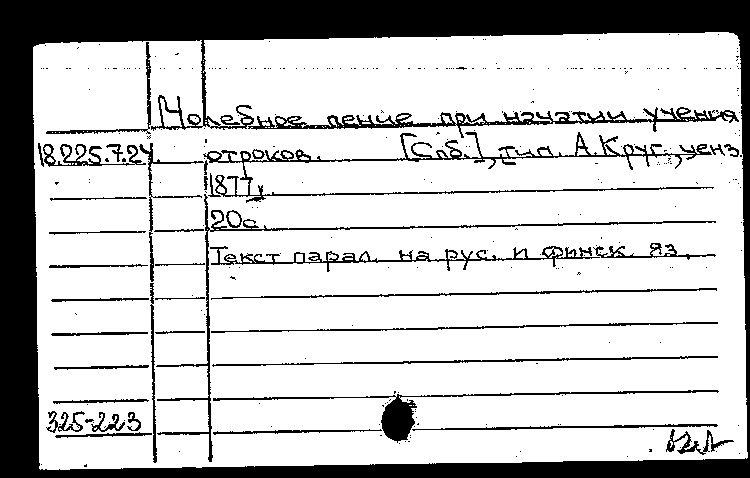 Молебное пение при начатии учения
18.225.7.24. отроков. [Спб.], тип. А.Круг., ценз.
1877.
20с.
Текст парал. на рус. и финск. яз.
325-223